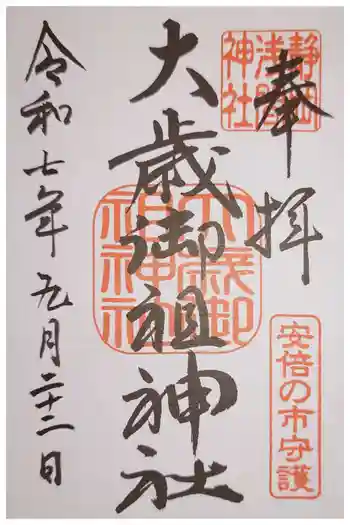 奉拝
静岡浅間神社
安倍の市守護
大歳御祖神社
大歳御祖神社
令和七年元月二十二日